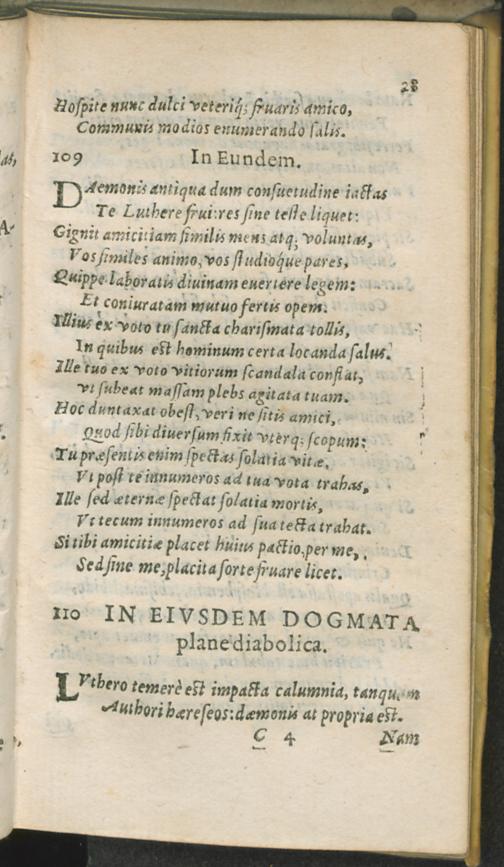 28
Hoſpite nunc dulci veteriq́; fruaris amico,
Communis modios enumerando ſalis.
109 In Eundem.
DAemonis antiqua dum conſuetudine iactas
Te Luthere frui: res ſine teſte liquet:
Gignit amicitiam ſimilis mens atq; voluntas,
Vos ſimiles animo, vos ſtudioque pares.
Quippe laboratis diuinam euertere legem:
Et coniuratam mutuo fertis opem.
Illius ex voto tu ſancta chariſmata tollis,
In quibus eſt hominum certa locanda ſalus.
Ille tuo ex voto vitiorum ſcandala conflat,
vt ſubeat maſſam plebs agitata tuam.
Hoc duntaxat obeſt, veri ne ſitis amici,
Quod ſibi diuerſum fixit vterq; ſcopum:
Tu præſentis enim ſpectas ſolatia vitæ,
Vt poſt te innumeros ad tua vota trahas,
Ille ſed æternæ ſpectat ſolatia mortis,
Vt tecum innumeros ad ſua tecta trahat.
Si tibi amicitiæ placet huius pactio, per me,.
Sed ſine me, placita ſorte fruare licet.
110 IN EIVSDEM DOGMATA
plane diabolica.
LVthero temerè eſt impacta calumnia, tanquam
Authori hæreſeos: dæmonis at propria eſt.
C 4 Nam
las,
A-